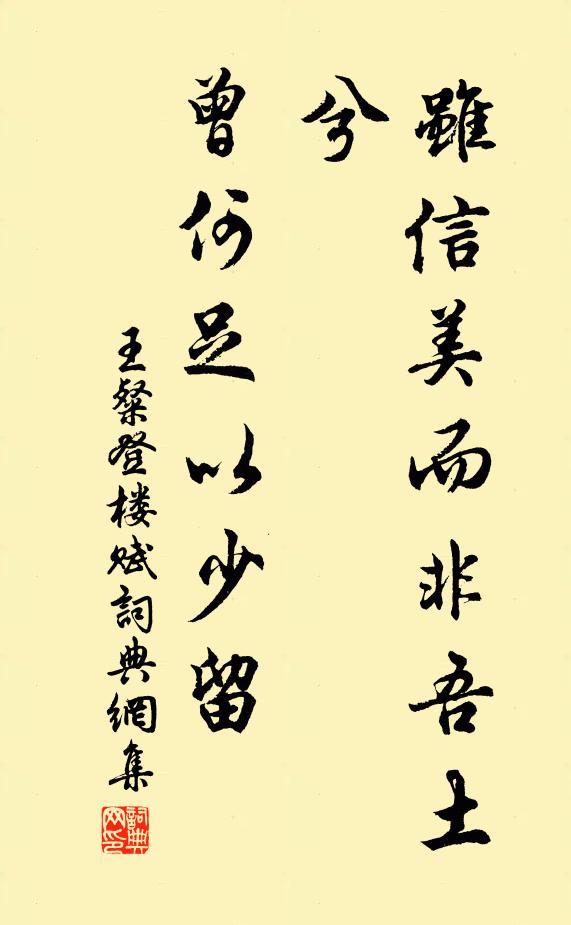 雖信美而非吾土
兮
曾何足以少留
王粲登楼賦詞典網集
詞典
网印